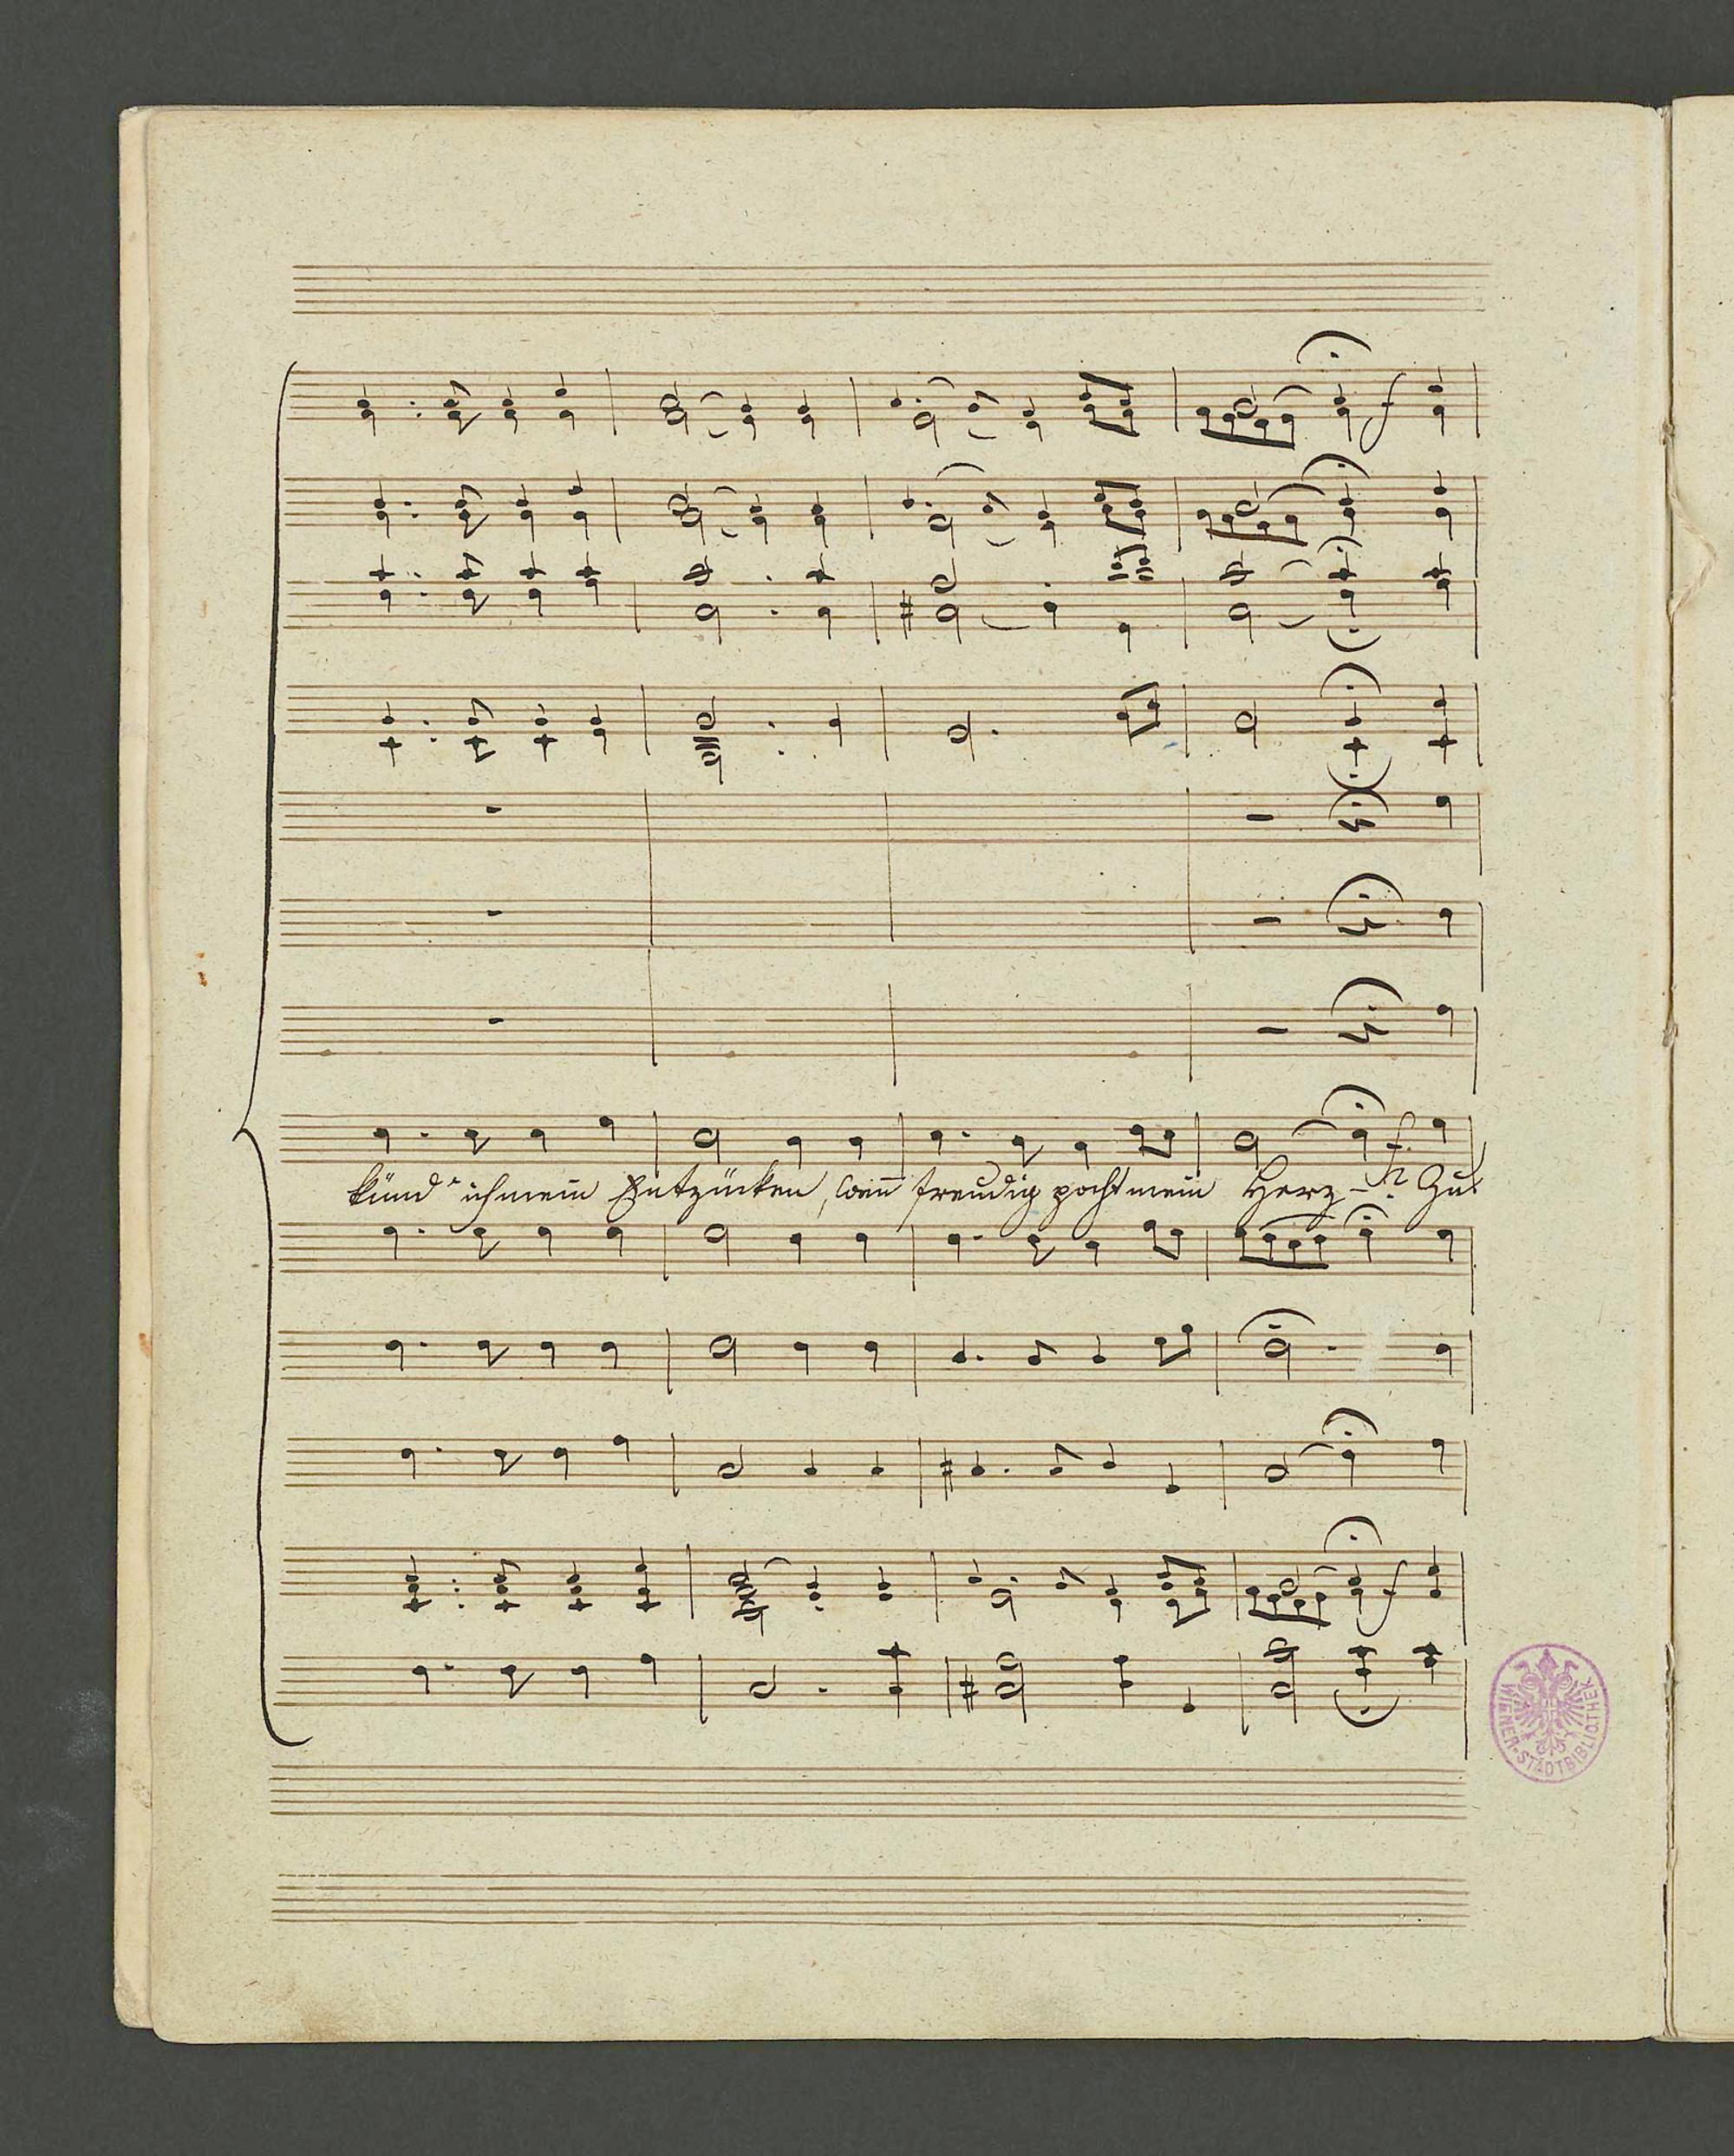 f
f
künd' ich mein Entzücken, wenn freudig pocht mein Herz – ? Zu
f
WIENER STADTBIBLIOTHEK